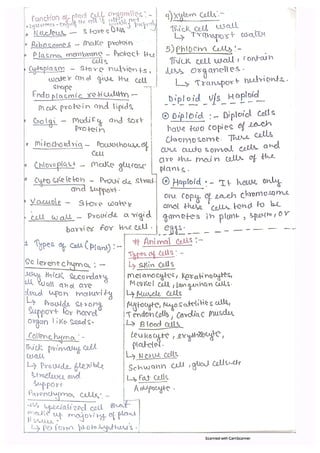 Function of plant cell organelles :-
• Nucleus - Stores DNA
• Ribosomes - Make protein
• Plasma membrane - Protect the
cells
• Cytoplasm - Store nutrients,
water and give the cell
shape
Endoplasmic reticulum -
Mak protein and lipids
• Golgi - Modify and sort
Protein
• Mitochodria - Powerhouse of
cell
• Chloroplast - make glucose
• Cytoskeleton - Provide struct
and support.
• Vacuole - Store water
• cell wall - Provide a rigid
barrier for the cell.
Types of cell (Plant) :-
Sclerenchyma :-
very thick secondary
cell wall and are
dead upon maturity
↳ Provide strong
Support for hard
organ like seeds.
Collenchyma :-
thick primary cell
wall
↳ Provide flexible
structure and
support
Parenchyma cells :-
less specialized cell that
make up majority of plant
tissues.
↳ Perform photosynthesis.
4) Xylem cells :-
Thick cell wall
↳ Transport water
5) Phloem cells :-
Thick cell wall, contain
less organelles.
↳ Transport nutrients.
Diploid V/s Haploid
Diploid :- Diploid cells
have two copies of each
chromosome. These cells
are autosomal cells and
are the main cells of the
plants.
Haploid :- It have only
one copy of each chromosome
and these cells tend to be
gametes in plant, sperm, or
eggs.
# Animal cells :-
Types of cells :-
↳ Skin cells
melanocytes, Keratinocytes,
Merkel cell, langerhan cells.
↳ Muscle cells
Myocyte, Myosatellites cells,
Tendon cells, Cardiac muscles
↳ Blood cells
leukocyte, erythrocyte,
platelet.
↳ Nerve cells
Schwann cell, glial cell etc
↳ Fat cells
Adipocyte.
Scanned with CamScanner